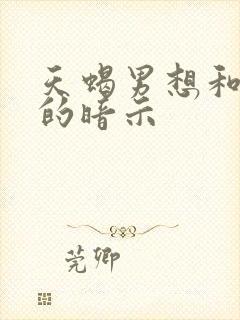 天蝎男想和
的暗示
莞卿